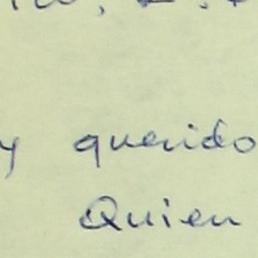 y querido
Quien